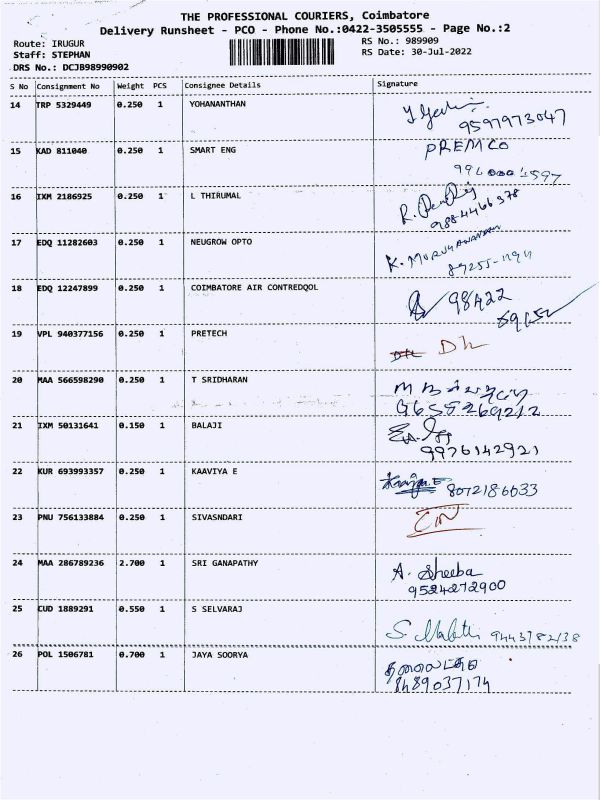 THE PROFESSIONAL COURIERS, Coimbatore
Delivery Runsheet - PCO - Phone No.:0422-3505555 - Page No.:2
Route: IRUGUR
RS No.: 989909
Staff: STEPHAN
RS Date: 30-Jul-2022
DRS No.: DCJB98990902
S No Consignment No Weight PCS Consignee Details Signature
14 TRP 5329449 0.250 1 YOHANANTHAN
9597973047
15 KAD 811040 0.250 1 SMART ENG PREMCO
16 IXM 2186925 0.250 1 L THIRUMAL
9884466378
17 EDQ 11282603 0.250 1 NEUGROW OPTO K.
18 EDQ 12247899 0.250 1 COIMBATORE AIR CONTREDQOL 98422
19 VPL 940377156 0.250 1 PRETECH
20 MAA 566598290 0.250 1 T SRIDHARAN
9655269212
21 IXM 50131641 0.150 1 BALAJI
9976142921
22 KUR 693993357 0.250 1 KAAVIYA E
8072186633
23 PNU 756133884 0.250 1 SIVASNDARI
24 MAA 286789236 2.700 1 SRI GANAPATHY A. Sheeba
9524272900
25 CUD 1889291 0.550 1 S SELVARAJ
S. 9443782138
26 POL 1506781 0.700 1 JAYA SOORYA
8489037174